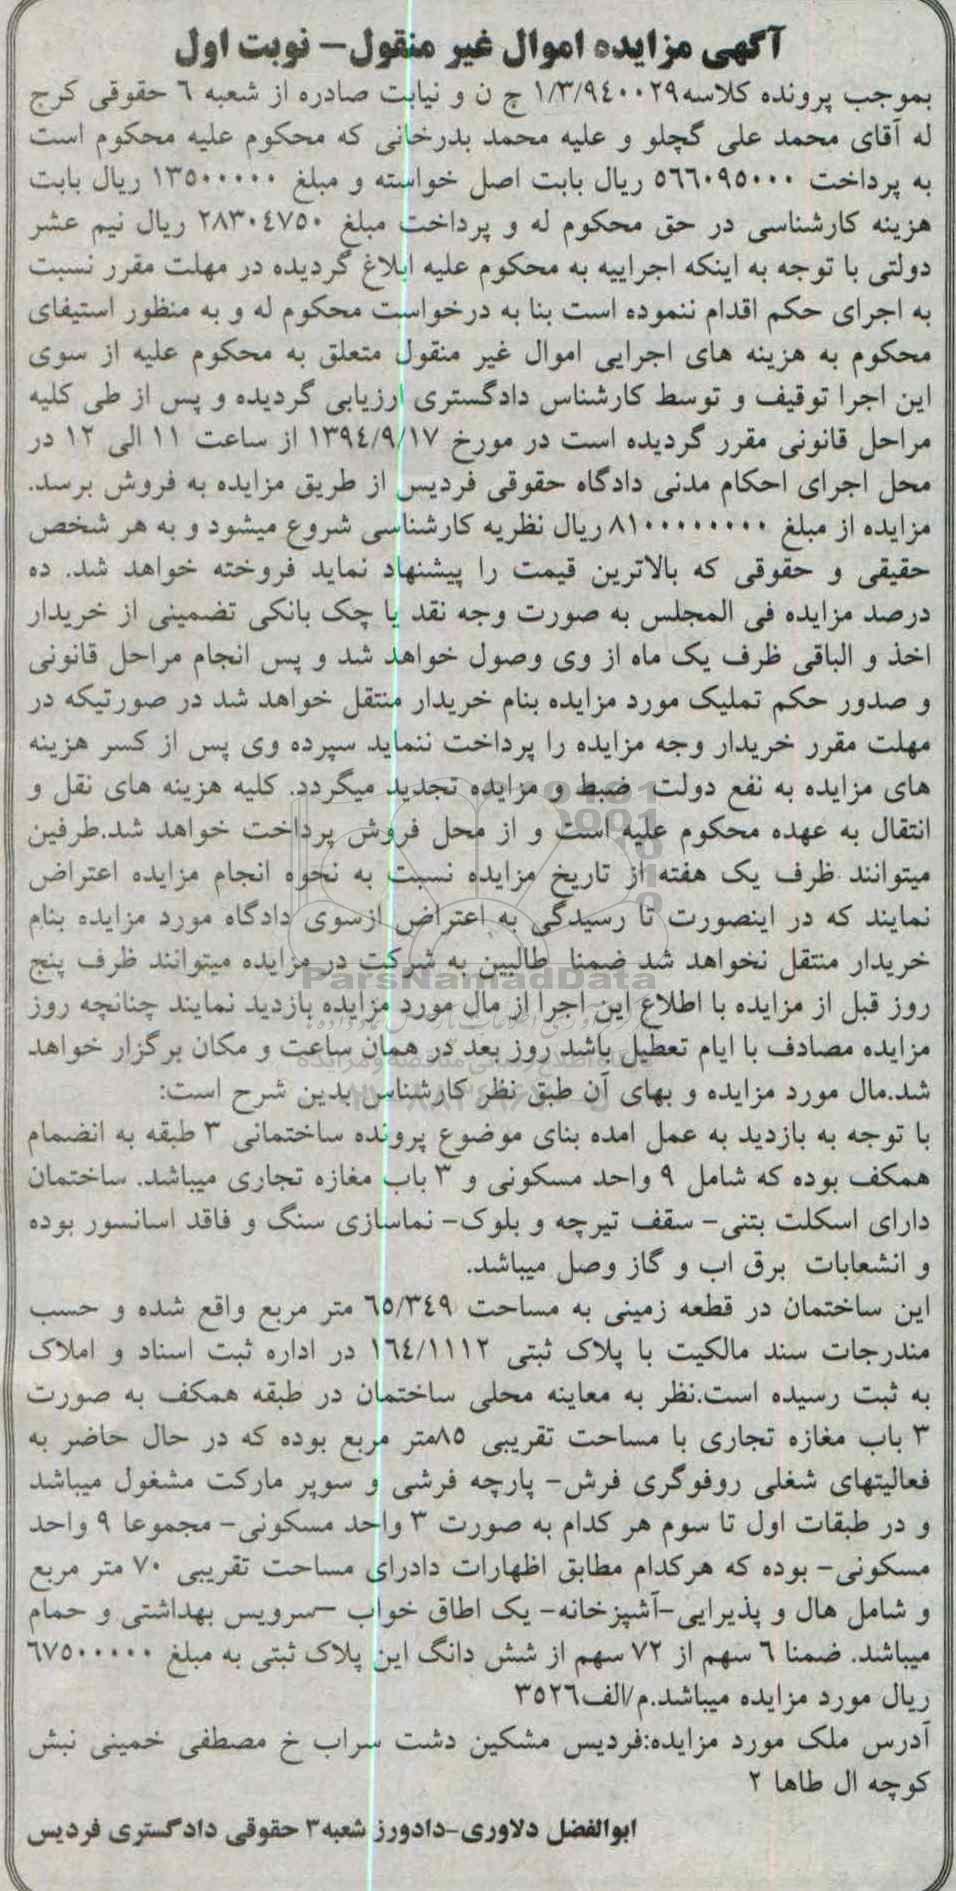 آگهی مزایده اموال غیر منقول- نوبت اول
بموجب پرونده کلاسه۱/۳/۹٤۰۰۲۹ ج ن و نیابت صادره از شعبه ٦ حقوقی کرج
له آقای محمد علی گچلو و علیه محمد بدرخانی که محکوم علیه محکوم است
به پرداخت ٥٦٦۰۹٥۰۰۰ ریال بابت اصل خواسته و مبلغ ۱۳٥۰۰۰۰۰ ریال بابت
هزینه کارشناسی در حق محکوم له و پرداخت مبلغ ۲۸۳۰٤۷٥۰ ریال نیم عشر
دولتی با توجه به اینکه اجراییه به محکوم علیه ابلاغ گردیده در مهلت مقرر نسبت
به اجرای حکم اقدام ننموده است بنا به درخواست محکوم له و به منظور استیفای
محکوم به هزینه های اجرایی اموال غیر منقول متعلق به محکوم علیه از سوی
این اجرا توقیف و توسط کارشناس دادگستری ارزیابی گردیده و پس از طی کلیه
مراحل قانونی مقرر گردیده است در مورخ ۱۳۹٤/۹/۱۷ از ساعت ۱۱ الی ۱۲ در
محل اجرای احکام مدنی دادگاه حقوقی فردیس از طریق مزایده به فروش برسد.
مزایده از مبلغ ۸۱۰۰۰۰۰۰۰۰ ریال نظریه کارشناسی شروع میشود و به هر شخص
حقیقی و حقوقی که بالاترین قیمت را پیشنهاد نماید فروخته خواهد شد. ده
درصد مزایده فی المجلس به صورت وجه نقد یا چک بانکی تضمینی از خریدار
اخذ و الباقی ظرف یک ماه از وی وصول خواهد شد و پس انجام مراحل قانونی
و صدور حکم تملیک مورد مزایده بنام خریدار منتقل خواهد شد در صورتیکه در
مهلت مقرر خریدار وجه مزایده را پرداخت ننماید سپرده وی پس از کسر هزینه
های مزایده به نفع دولت ضبط و مزایده تجدید میگردد. کلیه هزینه های نقل و
انتقال به عهده محکوم علیه است و از محل فروش پرداخت خواهد شد.طرفین
میتوانند ظرف یک هفته از تاریخ مزایده نسبت به نحوه انجام مزایده اعتراض
نمایند که در اینصورت تا رسیدگی به اعتراض ازسوی دادگاه مورد مزایده بنام
خریدار منتقل نخواهد شد ضمنا طالبین به شرکت در مزایده میتوانند ظرف پنج
ParsNamadData
روز قبل از مزایده با اطلاع این اجرا از مال مورد مزایده بازدید نمایند چنانچه روز
مزایده مصادف با ایام تعطیل باشد روز بعد در همان ساعت و مکان برگزار خواهد
شد.مال مورد مزایده و بهای آن طبق نظر کارشناس بدین شرح است:
با توجه به بازدید به عمل امده بنای موضوع پرونده ساختمانی ۳ طبقه به انضمام
همکف بوده که شامل ۹ واحد مسکونی و ۳ باب مغازه تجاری میباشد. ساختمان
دارای اسکلت بتنی- سقف تیرچه و بلوک- نماسازی سنگ و فاقد اسانسور بوده
و انشعابات برق اب و گاز وصل میباشد.
این ساختمان در قطعه زمینی به مساحت ٦٥/۳٤۹ متر مربع واقع شده و حسب
مندرجات سند مالکیت با پلاک ثبتی ۱٦٤/۱۱۱۲ در اداره ثبت اسناد و املاک
به ثبت رسیده است.نظر به معاینه محلی ساختمان در طبقه همکف به صورت
۳ باب مغازه تجاری با مساحت تقریبی ۸٥متر مربع بوده که در حال حاضر به
فعالیتهای شغلی روفوگری فرش- پارچه فرشی و سوپر مارکت مشغول میباشد
و در طبقات اول تا سوم هر کدام به صورت ۳ واحد مسکونی- مجموعا ۹ واحد
مسکونی- بوده که هرکدام مطابق اظهارات دادرای مساحت تقریبی ۷۰ متر مربع
و شامل هال و پذیرایی-آشپزخانه- یک اطاق خواب -سرویس بهداشتی و حمام
میباشد. ضمنا ٦ سهم از ۷۲ سهم از شش دانگ این پلاک ثبتی به مبلغ ٦۷٥۰۰۰۰۰
ریال مورد مزایده میباشد.م/الف۳٥۲٦
آدرس ملک مورد مزایده:فردیس مشکین دشت سراب خ مصطفی خمینی نبش
کوچه ال طاها ۲
ابوالفضل دلاوری-دادورز شعبه۳ حقوقی دادگستری فردیس